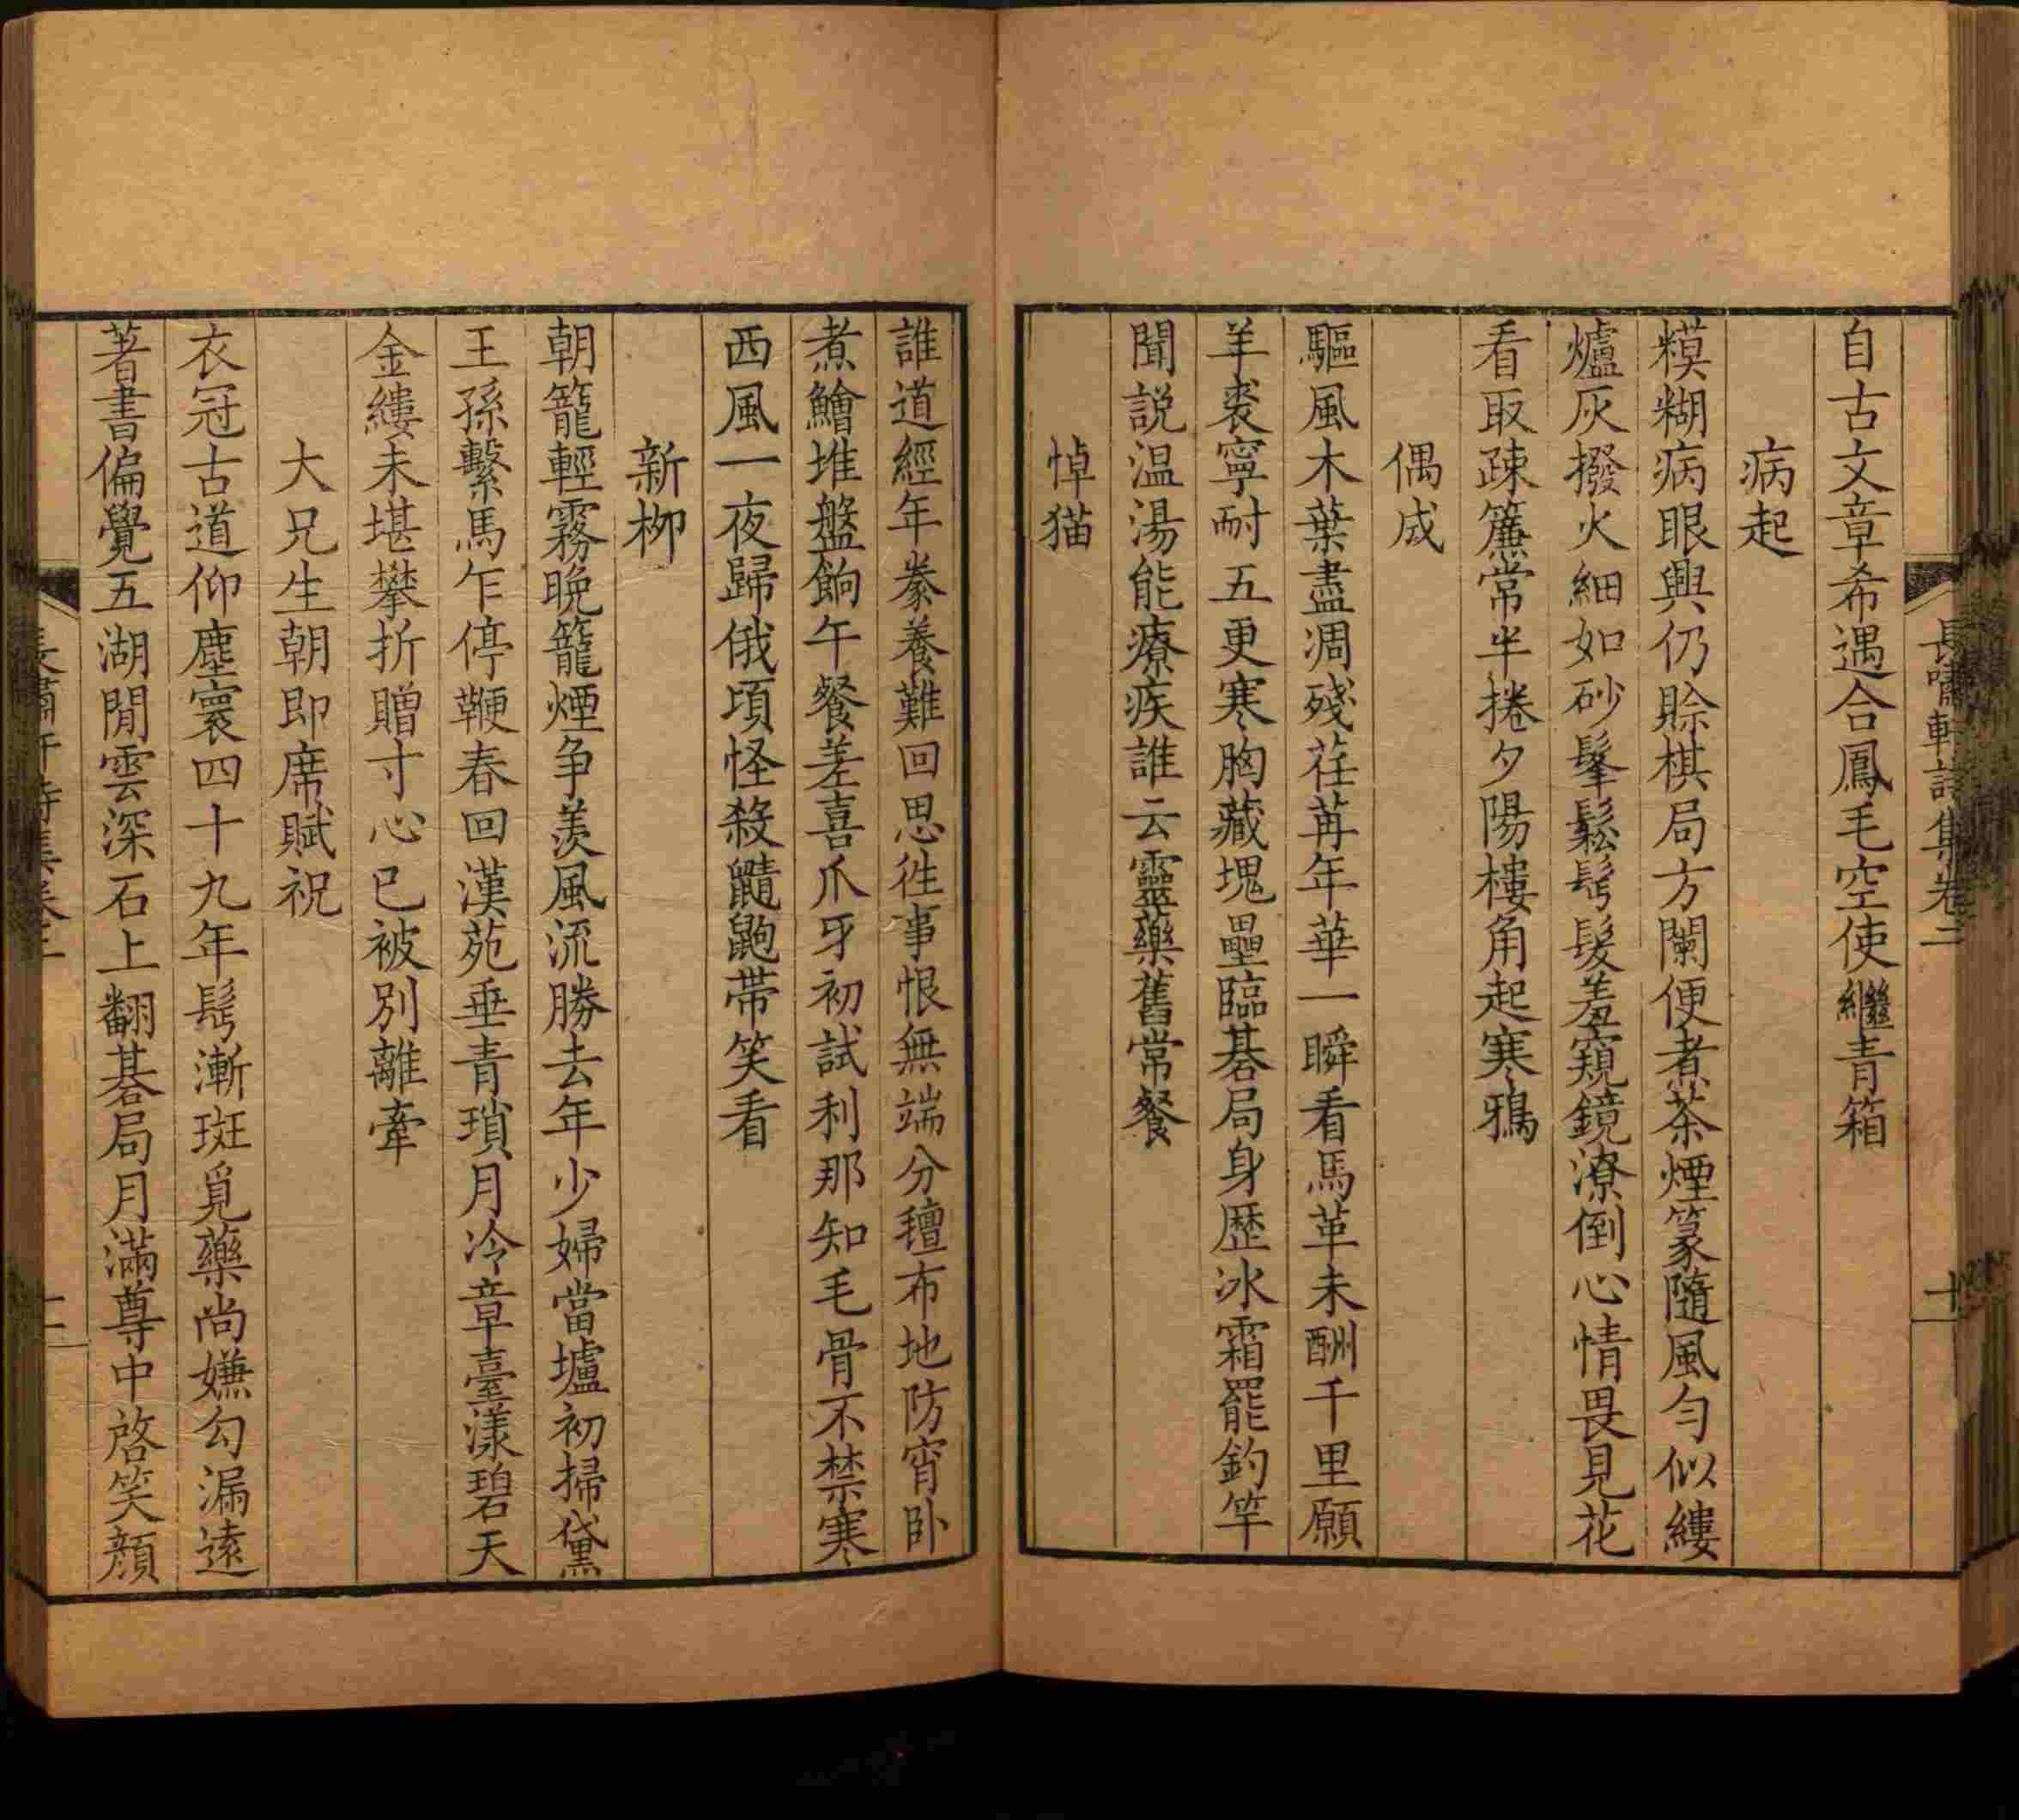 長嘯軒詩集卷二
十
自古文章希遇合鳳毛空使繼青箱
病起
糢糊病眼興仍賒棋局方闌便煮茶煙篆隨風勻似縷
爐灰撥火細如砂髼鬆髩髮羞窺鏡潦倒心情畏見花
看取疎簾常半捲夕陽樓角起寒鴉
偶成
驅風木葉盡凋殘荏苒年華一瞬看馬革未酬千里願
羊裘寧耐五更寒胸藏塊壘臨碁局身歷冰霜罷釣竿
聞説温湯能療疾誰云靈藥舊常餐
悼猫
誰道經年豢養難回思徃事恨無端分氊布地防宵卧
煮鱠堆盤餉午餐差喜爪牙初試利那知毛骨不禁寒
西風一夜歸俄頃怪殺鼷鼩帶笑看
新栁
朝籠輕霧晩籠煙争羨風流勝去年少婦當壚初掃黛
王孫繫馬乍停鞭春回漢苑垂青瑣月冷章臺漾碧天
金縷未堪攀折贈寸心已被別離牽
大兄生朝即席賦祝
衣冠古道仰塵寰四十九年髩漸斑覓藥尚嫌勾漏遠
著書偏覺五湖閒雲深石上翻碁局月滿尊中啓笑顔